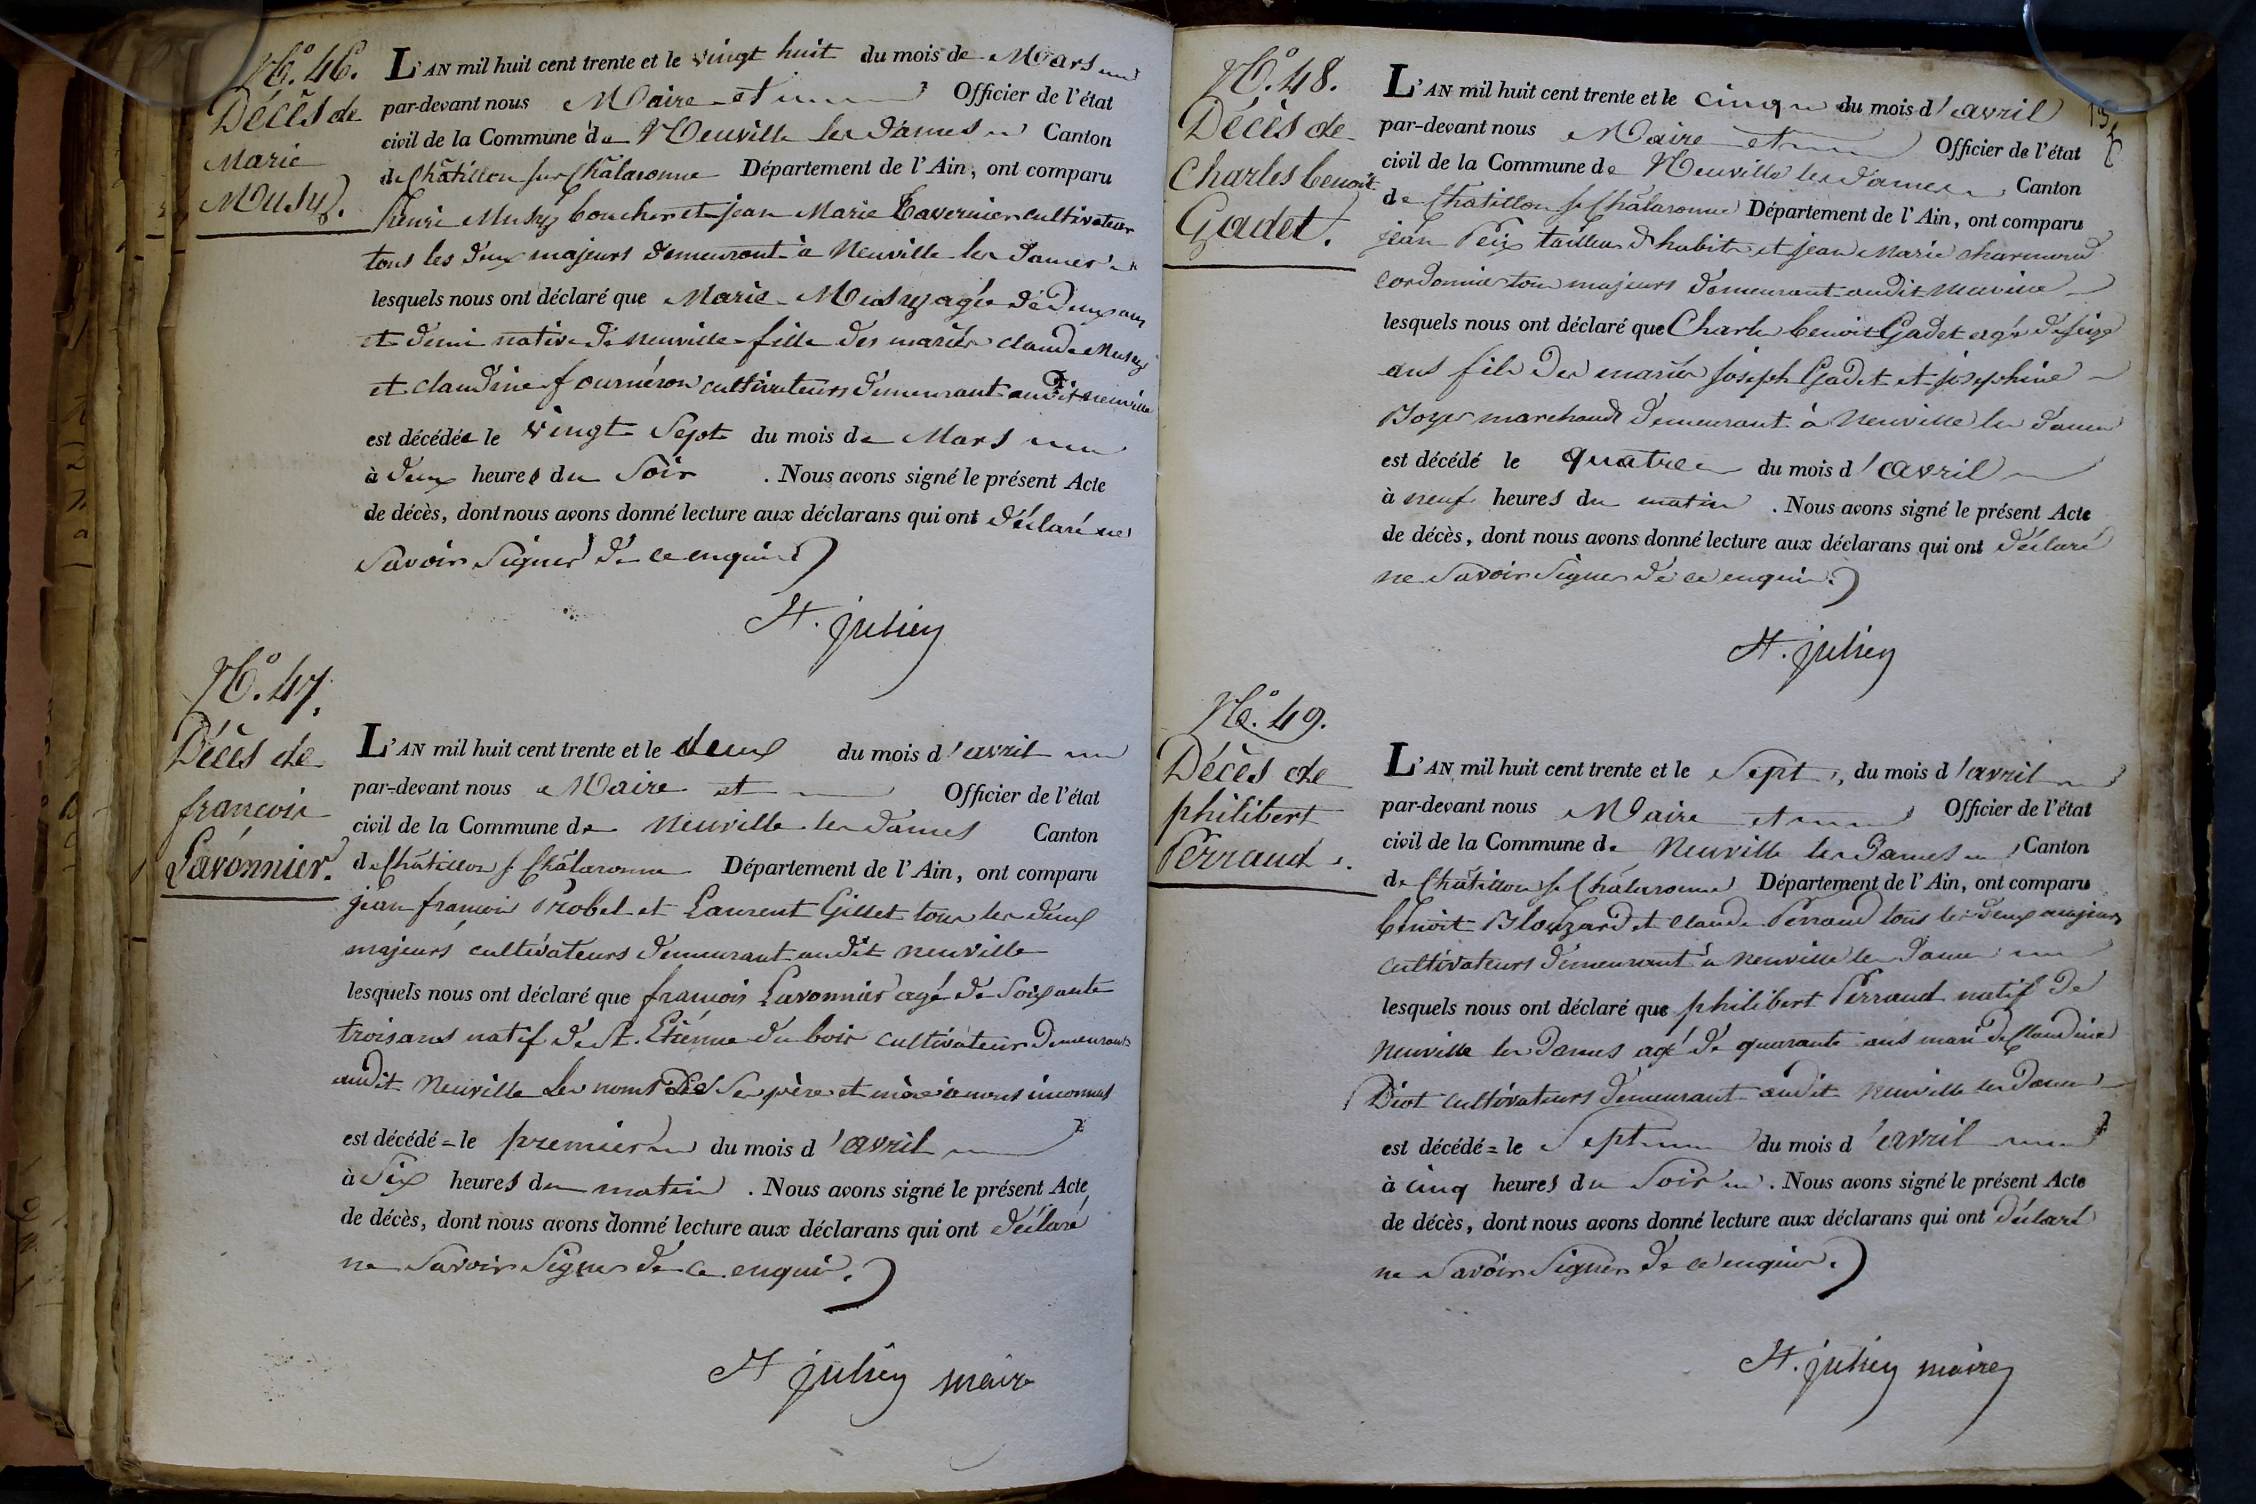 N.º 46.
Décès de
Marie
Musy.
L'AN mil huit cent trente et le vingt huit du mois de Mars
par-devant nous Maire et Officier de l'état
civil de la Commune de Neuville les Dames Canton
de Châtillon sur Châlaronne Département de l'Ain, ont comparu
henri Musy boucher et jean Marie Tavernier cultivateur
tous les deux majeurs demeurant à Neuville les dames
lesquels nous ont déclaré que Marie Musy agée de deux ans
et demi native de neuville fille des mariés claude Musy
et claudine fournéron cultivateurs demeurant audit neuville
est décédée le vingt Sept du mois de Mars
à deux heures du Soir . Nous avons signé le présent Acte
de décès, dont nous avons donné lecture aux déclarans qui ont déclaré ne
Savoir Signer de ce enquis
St. julien
N.º 47.
Décès de
françois
Lavonnier.
L'AN mil huit cent trente et le deux du mois d'avril
par-devant nous Maire et Officier de l'état
civil de la Commune de Neuville les dames Canton
de Châtillon s. Châlaronne Département de l'Ain, ont comparu
jean françois Probel et Laurent Gillet tous les deux
majeurs cultivateurs demeurant audit neuville
lesquels nous ont déclaré que françois Lavonnier agé de Soixante
trois ans natif de St. Etienne du bois cultivateur demeurant
audit Neuville Les noms de Ses père et mère à nous inconnus
est décédé = le premier du mois d'avril
à Six heures du matin . Nous avons signé le présent Acte
de décès, dont nous avons donné lecture aux déclarans qui ont déclaré
ne Savoir Signer de ce enquis.
St julien maire
N.º 48.
Décès de
Charles benoit
Gadet.
L'AN mil huit cent trente et le cinq du mois d'avril
par-devant nous Maire et Officier de l'état
civil de la Commune de Neuville les dames Canton
de Châtillon s. Châlaronne Département de l'Ain, ont comparu
jean Peix tailleur d'habits et jean Marie charmond
cordonnier tous majeurs demeurant audit neuville
lesquels nous ont déclaré que Charles benoit Gadet agé de Seize
ans fils des mariés joseph Gadet et josephine
Boyer marchands demeurant à Neuville les dames
est décédé le quatre du mois d'avril
à neuf heures du matin . Nous avons signé le présent Acte
de décès, dont nous avons donné lecture aux déclarans qui ont déclaré
ne Savoir Signer de ce enquis.
St. julien
N.º 49.
Décès de
philibert
Perraud.
L'AN mil huit cent trente et le Sept du mois d'avril
par-devant nous Maire et Officier de l'état
civil de la Commune de Neuville les Dames Canton
de Châtillon s. Châlaronne Département de l'Ain, ont comparu
benoit Blouzard et claude Perraud tous les deux majeurs
cultivateurs demeurant à neuville les dames
lesquels nous ont déclaré que philibert Perraud natif de
Neuville les Dames agé de quarante ans mari de Claudine
Diot cultivateurs demeurant audit Neuville les Dames
est décédé = le Sept du mois d'avril
à cinq heures du Soir . Nous avons signé le présent Acte
de décès, dont nous avons donné lecture aux déclarans qui ont déclaré
ne Savoir Signer de ce enquis.
St. julien maire